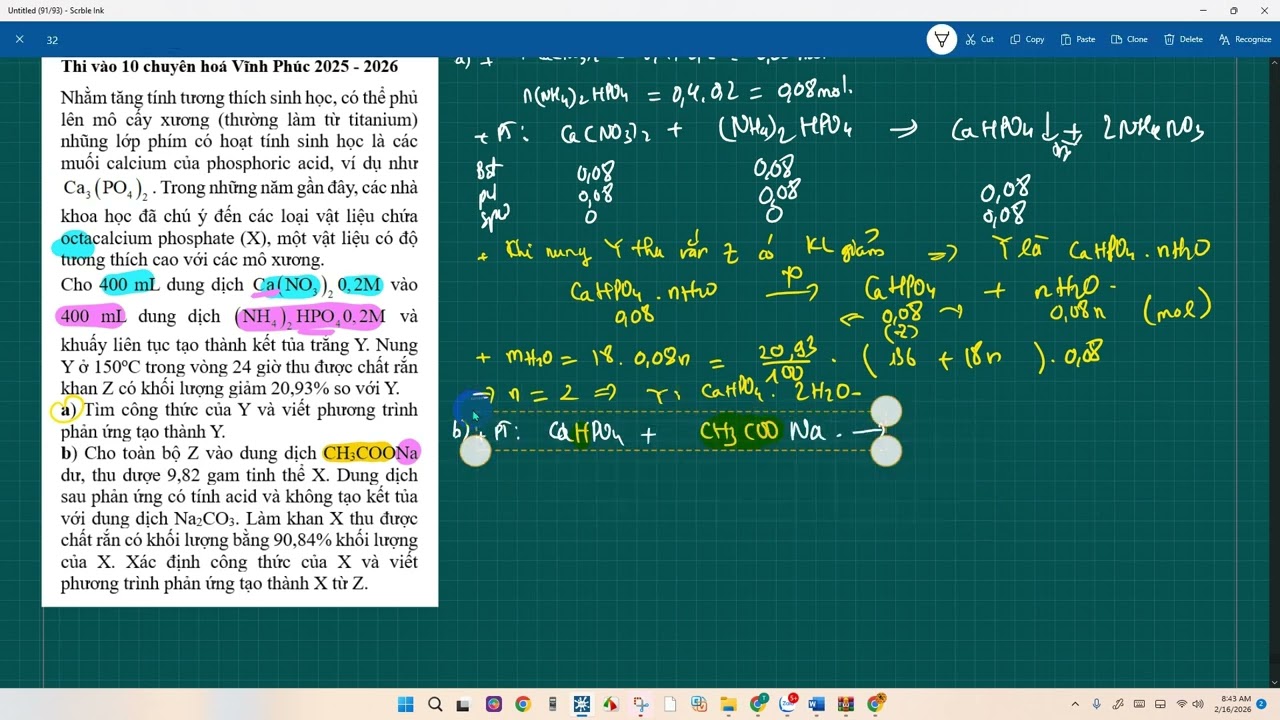 Untitled (91/93) - Scrble Ink
32
Cut
Copy
Paste
Clone
Delete
Recognize
Thi vào 10 chuyên hoá Vĩnh Phúc 2025 - 2026
Nhằm tăng tính tương thích sinh học, có thể phủ
lên mô cấy xương (thường làm từ titanium)
những lớp phím có hoạt tính sinh học là các
muối calcium của phosphoric acid, ví dụ như
Ca₃(PO₄)₂. Trong những năm gần đây, các nhà
khoa học đã chú ý đến các loại vật liệu chứa
octacalcium phosphate (X), một vật liệu có độ
tương thích cao với các mô xương.
Cho 400 mL dung dịch Ca(NO₃)₂ 0,2M vào
400 mL dung dịch (NH₄)₂HPO₄ 0,2M và
khuấy liên tục tạo thành kết tủa trắng Y. Nung
Y ở 150°C trong vòng 24 giờ thu được chất rắn
khan Z có khối lượng giảm 20,93% so với Y.
a) Tìm công thức của Y và viết phương trình
phản ứng tạo thành Y.
b) Cho toàn bộ Z vào dung dịch CH₃COONa
dư, thu được 9,82 gam tinh thể X. Dung dịch
sau phản ứng có tính acid và không tạo kết tủa
với dung dịch Na₂CO₃. Làm khan X thu được
chất rắn có khối lượng bằng 90,84% khối lượng
của X. Xác định công thức của X và viết
phương trình phản ứng tạo thành X từ Z.
n(NH₄)₂HPO₄ = 0,4.0,2 = 0,08mol.
Ca(NO₃)₂ + (NH₄)₂HPO₄ => CaHPO₄↓ + 2NH₄NO₃
0,08 0,08
0,08 0,08 0,08
0 0 0,08
+ Khi nung Y thu rắn Z có KL giảm => Y là CaHPO₄.nH₂O
CaHPO₄.nH₂O →(t°) CaHPO₄ + nH₂O
0,08 ← 0,08 → 0,08n (mol)
(Z)
+ mH₂O = 18.0,08n = 20,93/100 . (136 + 18n).0,08
=> n = 2 => Y: CaHPO₄.2H₂O
b) + PT: CaHPO₄ + CH₃COONa →
8:43 AM
2/16/2026